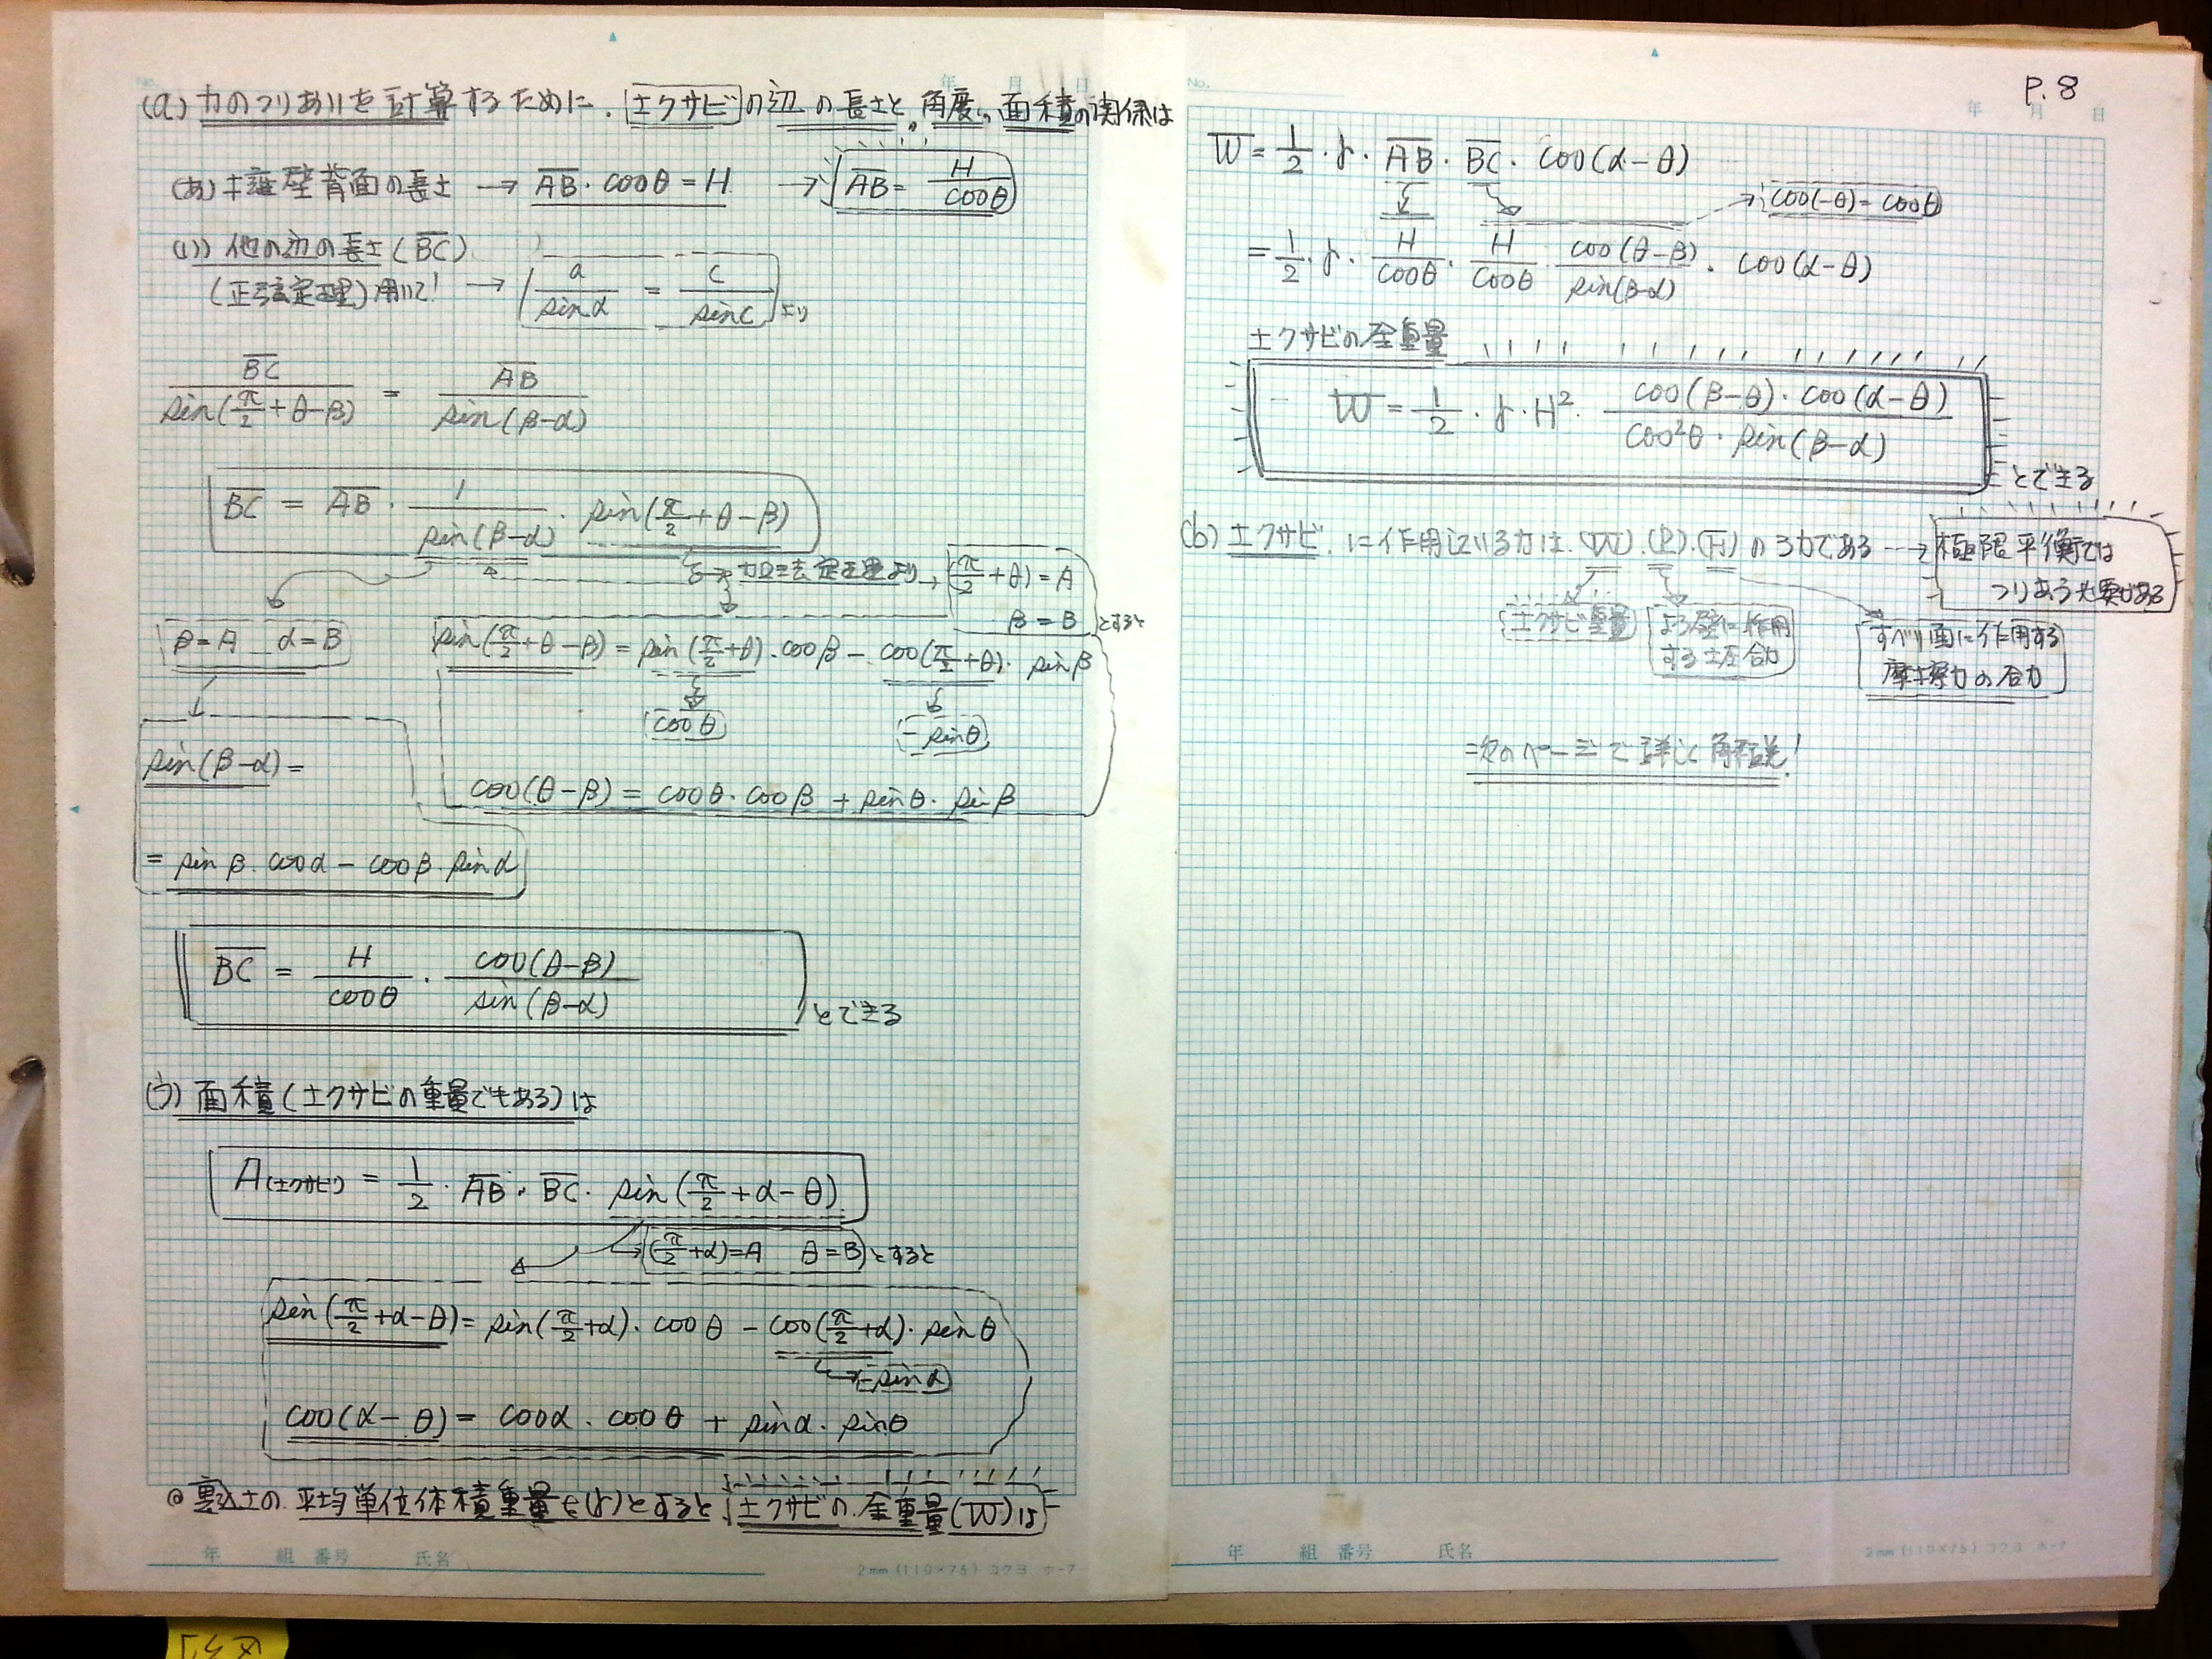 (a) 力のつりあいを計算するために、土クサビの辺の長さと、角度、面積の関係は
(あ) 擁壁背面の長さ → AB・cosθ = H → AB = H/cosθ
(い) 他の辺の長さ (BC)
(正弦定理) 用いて! → a/sinα = c/sinC より
BC/sin(π/2+θ-β) = AB/sin(β-α)
BC = AB・1/sin(β-α)・sin(π/2+θ-β)
加法定理より → (π/2+θ) = A
β = B とすると
β = A α = B
sin(π/2+θ-β) = sin(π/2+θ)・cosβ - cos(π/2+θ)・sinβ
cosθ -sinθ
sin(β-α) =
cos(θ-β) = cosθ・cosβ + sinθ・sinβ
= sinβ・cosα - cosβ・sinα
BC = H/cosθ・cos(θ-β)/sin(β-α) とできる
(う) 面積 (土クサビの重量でもある) は
A(土クサビ) = 1/2・AB・BC・sin(π/2+α-θ)
(π/2+α) = A θ = B とすると
sin(π/2+α-θ) = sin(π/2+α)・cosθ - cos(π/2+α)・sinθ
-sinα
cos(α-θ) = cosα・cosθ + sinα・sinθ
◎ 裏込土の平均単位体積重量を(γ)とすると 土クサビの全重量(W)は
年 組 番号 氏名
2mm (110×75) コクヨ ホ-7
No. 年 月 日
P.8
No. 年 月 日
W = 1/2・γ・AB・BC・cos(α-θ)
cos(-θ) = cosθ
= 1/2・γ・H/cosθ・H/cosθ・cos(θ-β)/sin(β-α)・cos(α-θ)
土クサビの全重量
W = 1/2・γ・H²・cos(β-θ)・cos(α-θ)/cos²θ・sin(β-α)
とできる
(b) 土クサビに作用している力は、(W)、(P)、(F)の3力である → 極限平衡では
つりあう必要がある
土クサビ重量
よう壁に作用
する土圧合力
すべり面に作用する
摩擦力の合力
=次のページで詳しく解説!
年 組 番号 氏名
2mm (110×75) コクヨ ホ-7